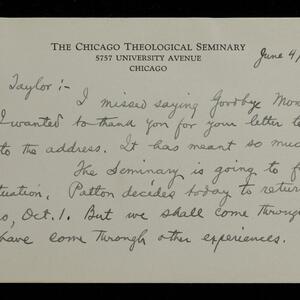 THE CHICAGO THEOLOGICAL SEMINARY
5757 UNIVERSITY AVENUE
CHICAGO
June 4/
Taylor:-
I missed saying Goodbye Mon
I wanted to thank you for your letter to
to the address. It has meant so muc
The Seminary is going to f
tuation. Patton decides today to retur
Oct. 1. But we shall come through
have come through other experiences.